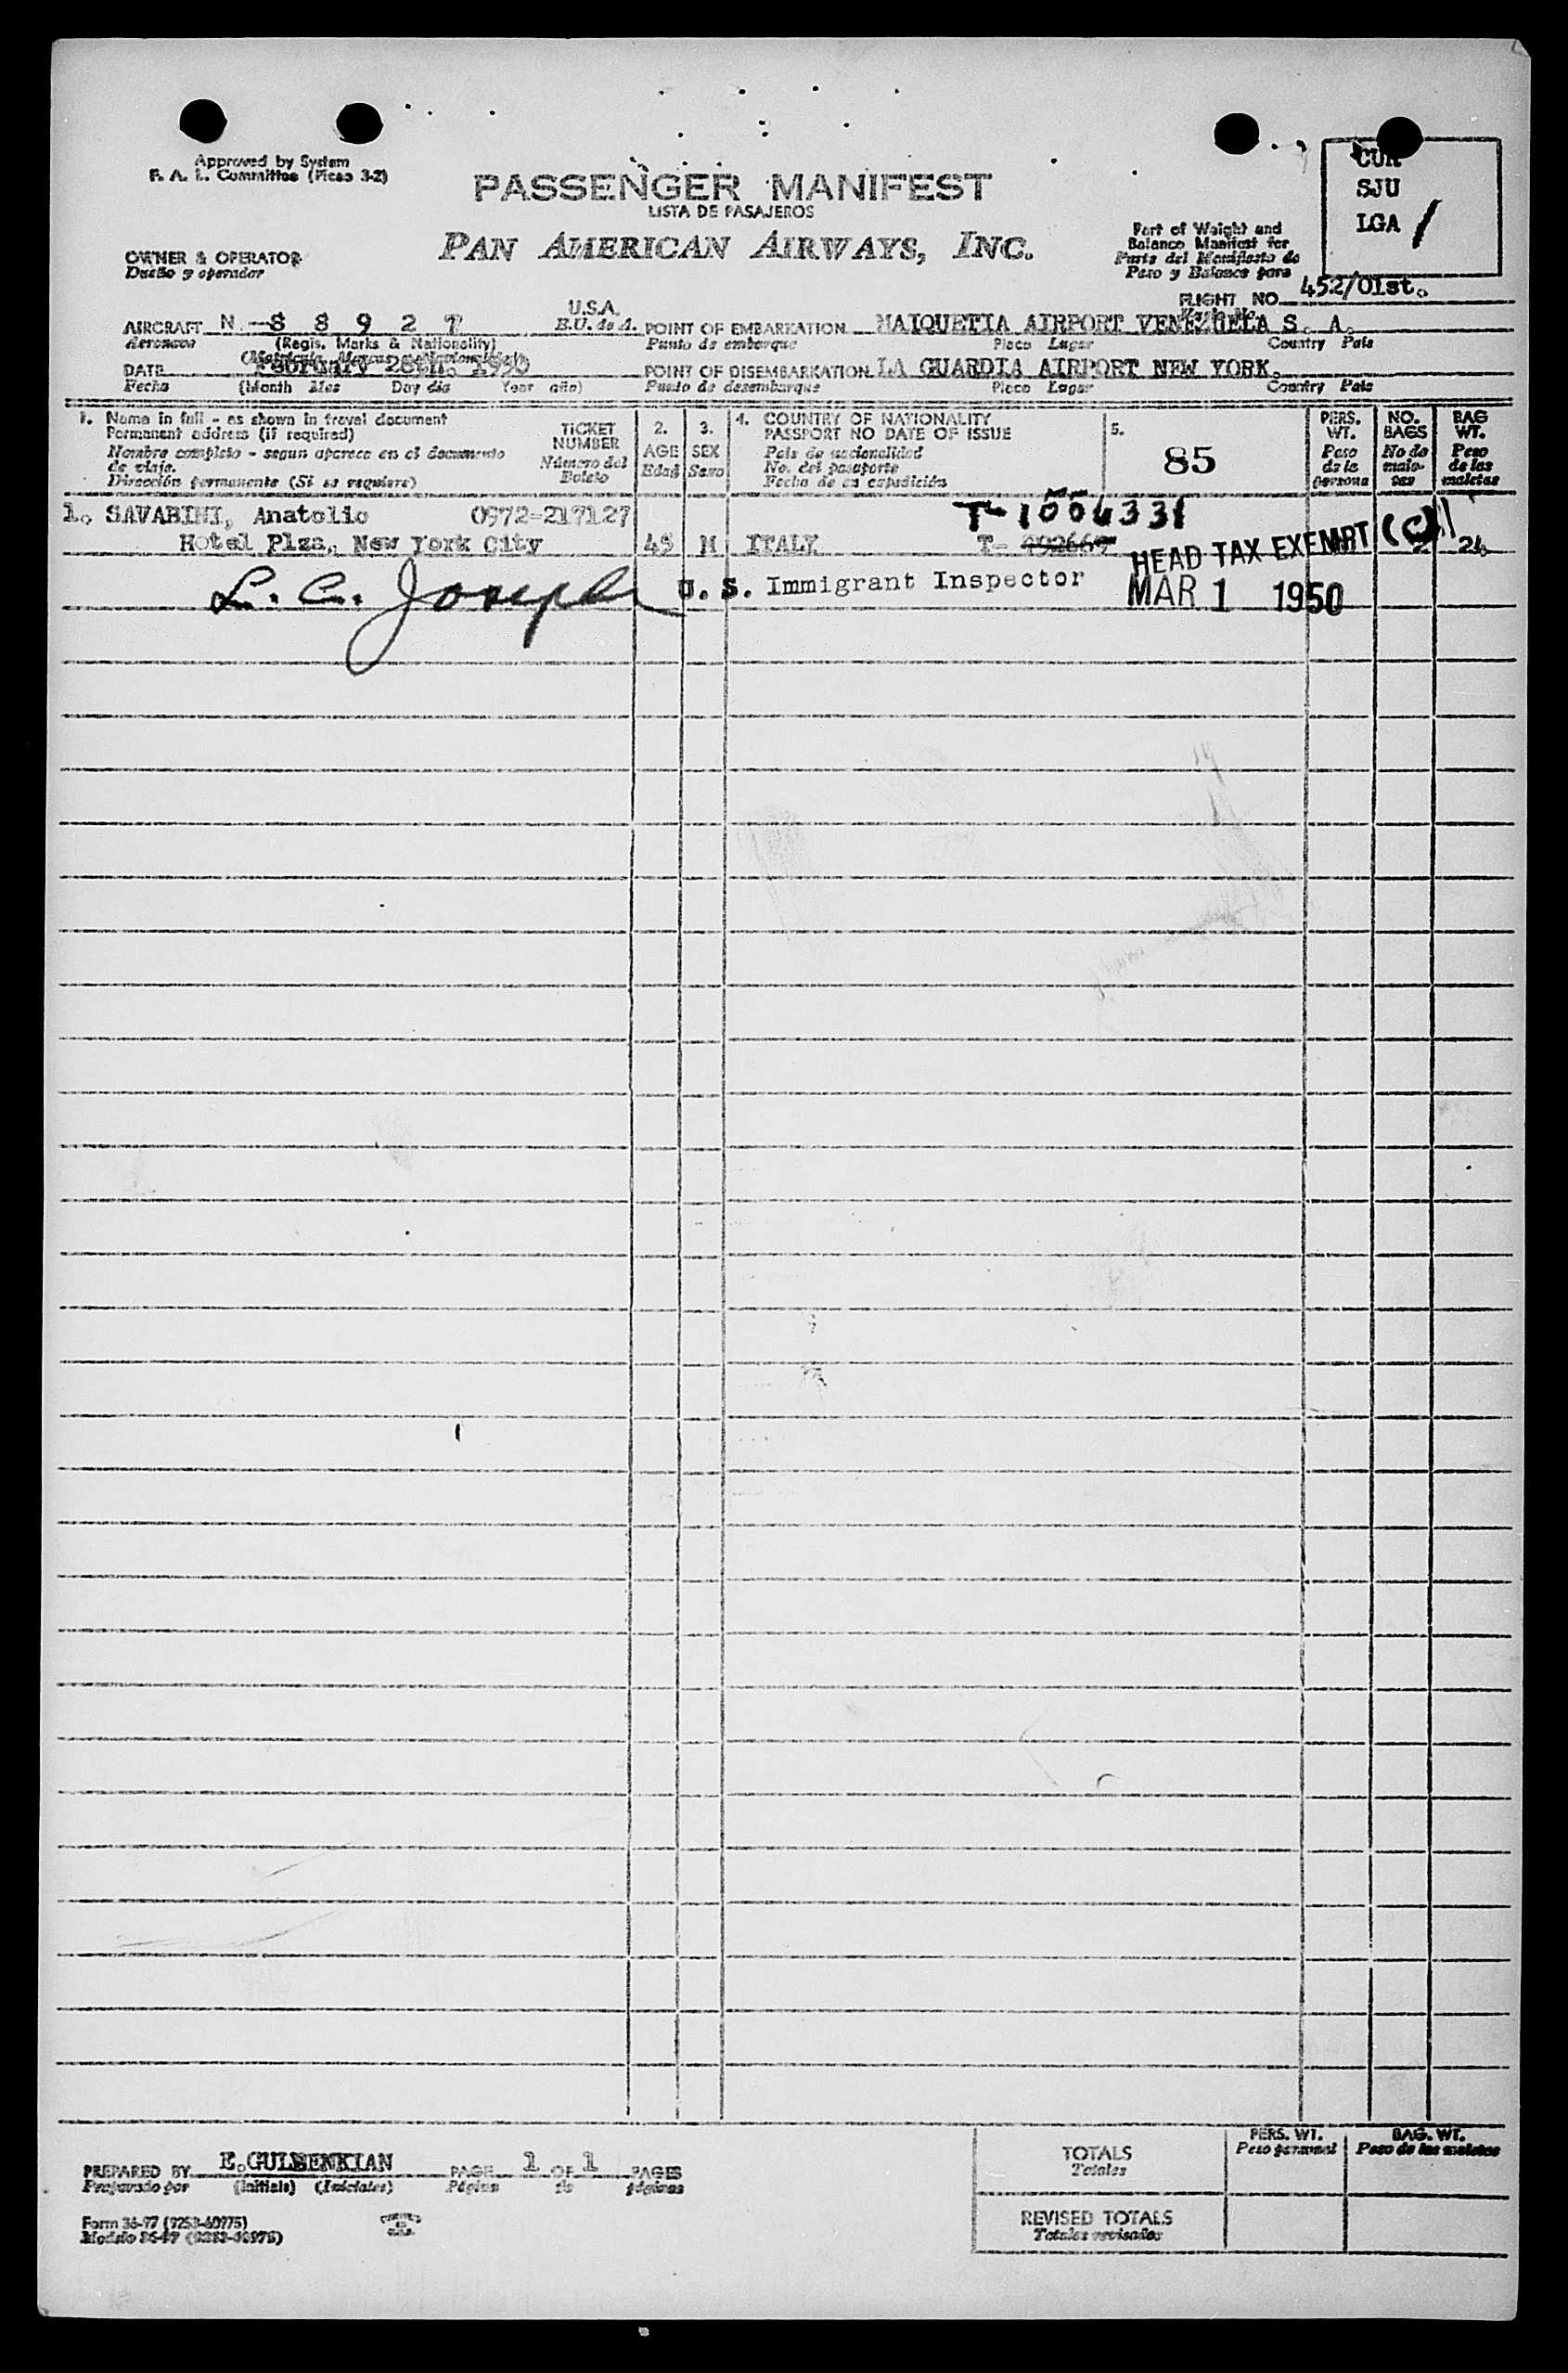 Approved by System
F. A. L. Committee (Mceo 3-2)
PASSENGER MANIFEST
LISTA DE PASAJEROS
PAN AMERICAN AIRWAYS, INC.
OWNER & OPERATOR
Dueño y operador
Part of Weight and
Balance Manifest for
Parte del Manifiesto de
Peso y Balance para
CUR
SJU
LGA /
FLIGHT NO. 452/01st.
AIRCRAFT N -8 8 9 2 7 U.S.A.
Aeronave (Regis. Marks & Nationality) E.U. de A.
POINT OF EMBARKATION MAIQUETIA AIRPORT VENEZUELA S. A.
Punto de embarque Place Lugar Country País
DATE February 28th. 1950
Fecha (Month Mes Day dia Year año)
POINT OF DISEMBARKATION LA GUARDIA AIRPORT NEW YORK.
Punto de desembarque Place Lugar Country País
1. Name in full - as shown in travel document
Permanent address (if required)
Nombre completo - segun aparece en el documento
de viaje.
Dirección permanente (Si se requiere)
TICKET
NUMBER
Número del
Boleto
2.
AGE
Edad
3.
SEX
Sexo
4. COUNTRY OF NATIONALITY
PASSPORT NO DATE OF ISSUE
País de nacionalidad
No. del pasaporte
Fecha de su expedición
5.
85
PERS.
WT.
Peso
de la
persona
NO.
BAGS
No de
male-
tas
BAG
WT.
Peso
de las
maletas
1. SAVARINI, Anatolio 0972-217127 T-1006331
Hotel Plza, New York City 45 M ITALY T- HEAD TAX EXEMPT (C) 24
L. C. Joseph U. S. Immigrant Inspector MAR 1 1950
PREPARED BY E.GULBENKIAN PAGE 1 OF 1 PAGES
Preparado por (Initials) (Iniciales) Página de páginas
Form 36-97 (9253-40975)
Modelo 36-97 (9253-40975)
TOTALS
Totales
PERS. WT.
Peso personal
BAG. WT.
Peso de las maletas
REVISED TOTALS
Totales revisados